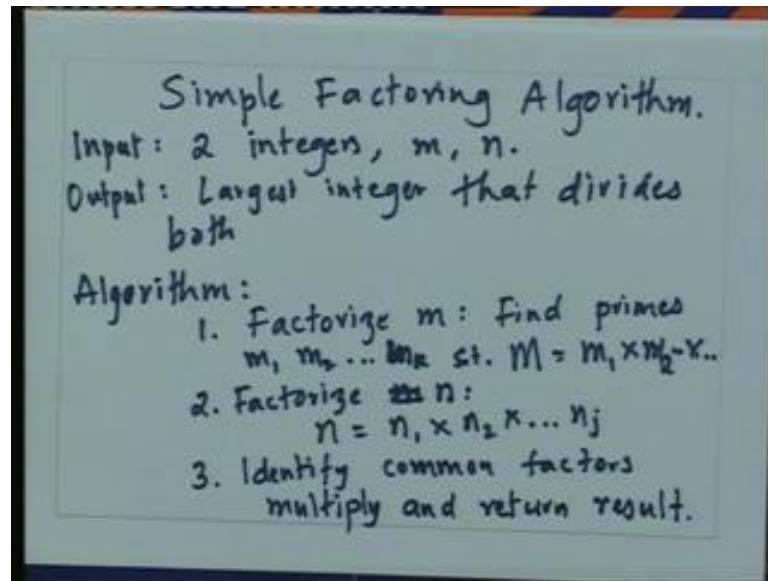 Simple Factoring Algorithm.
Input: 2 integers, m, n.
Output: Largest integer that divides
both
Algorithm:
1. Factorize m: Find primes
m₁ m₂ ... mₖ st. M = m₁ × m₂ - x..
2. Factorize n:
n = n₁ × n₂ × ... nj
3. Identify common factors
multiply and return result.